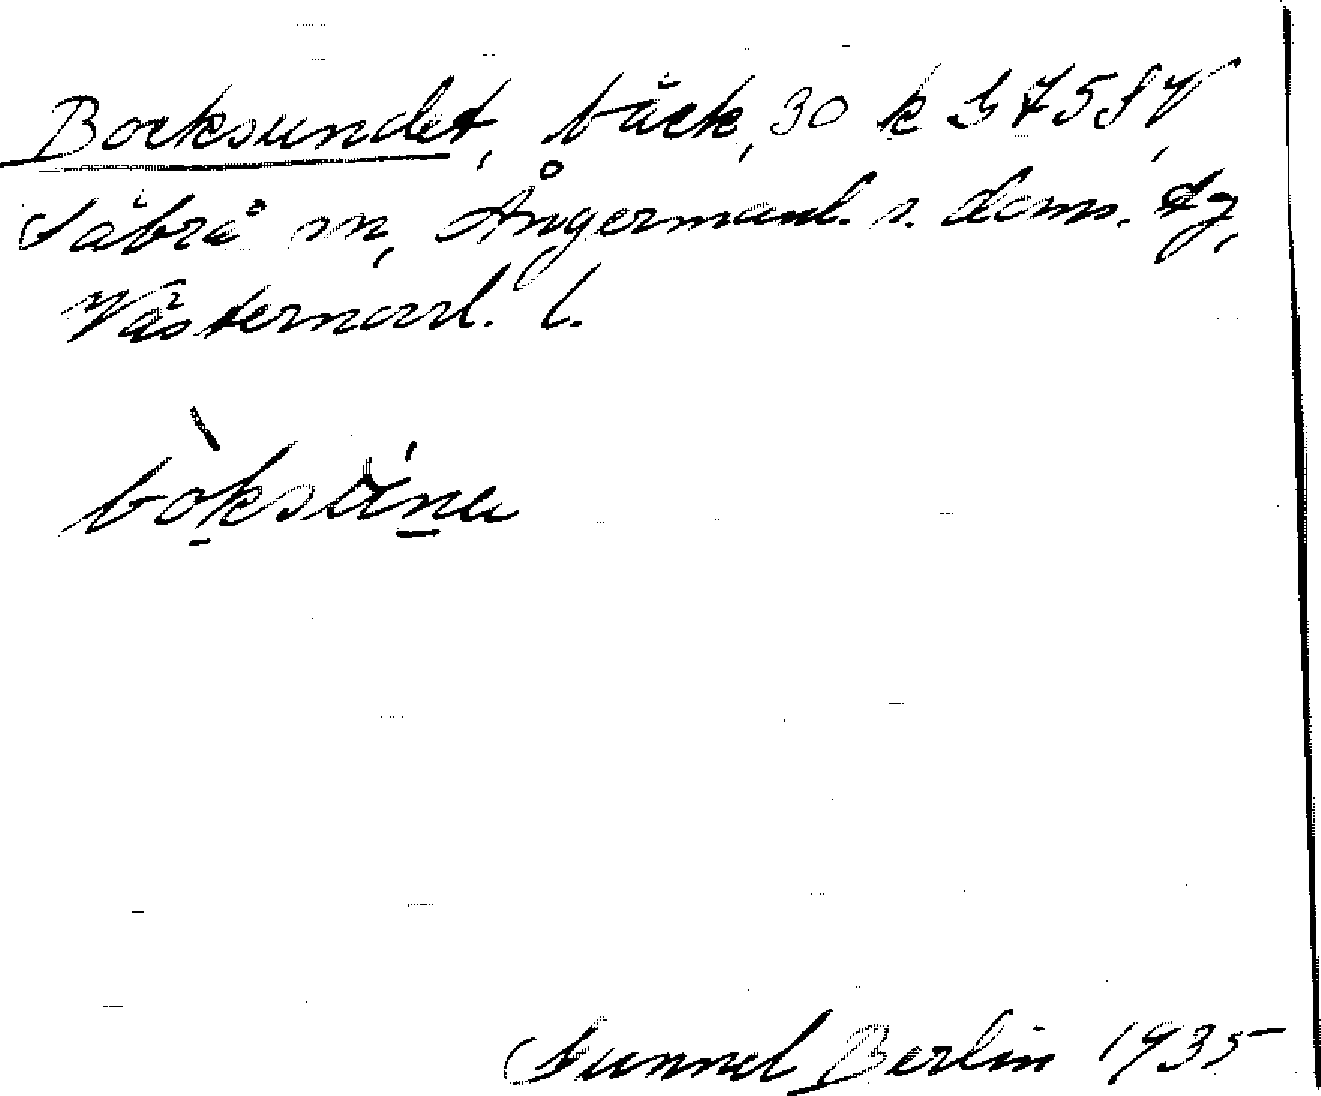 Bocksundet, bäck, 30 k G 75 SV,
Säbrå sn, Ångermanl. s. doms. tg,
Västernorrl. l.
bòksúna
Gunnel Berlin 1935